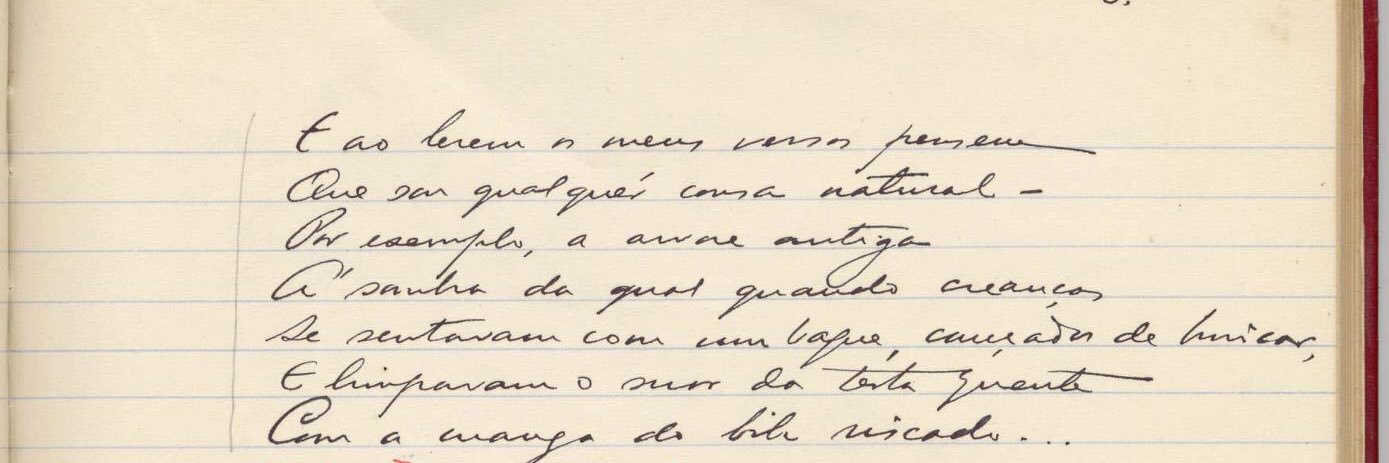 E ao lerem os meus versos pensem
Que sou qualquér cousa natural –
Por exemplo, a arvore antiga
Á sombra da qual quando creanças
Se sentavam com um baque, cançados de brincar,
E limpavam o suor da testa quente
Com a manga do bibe riscado...